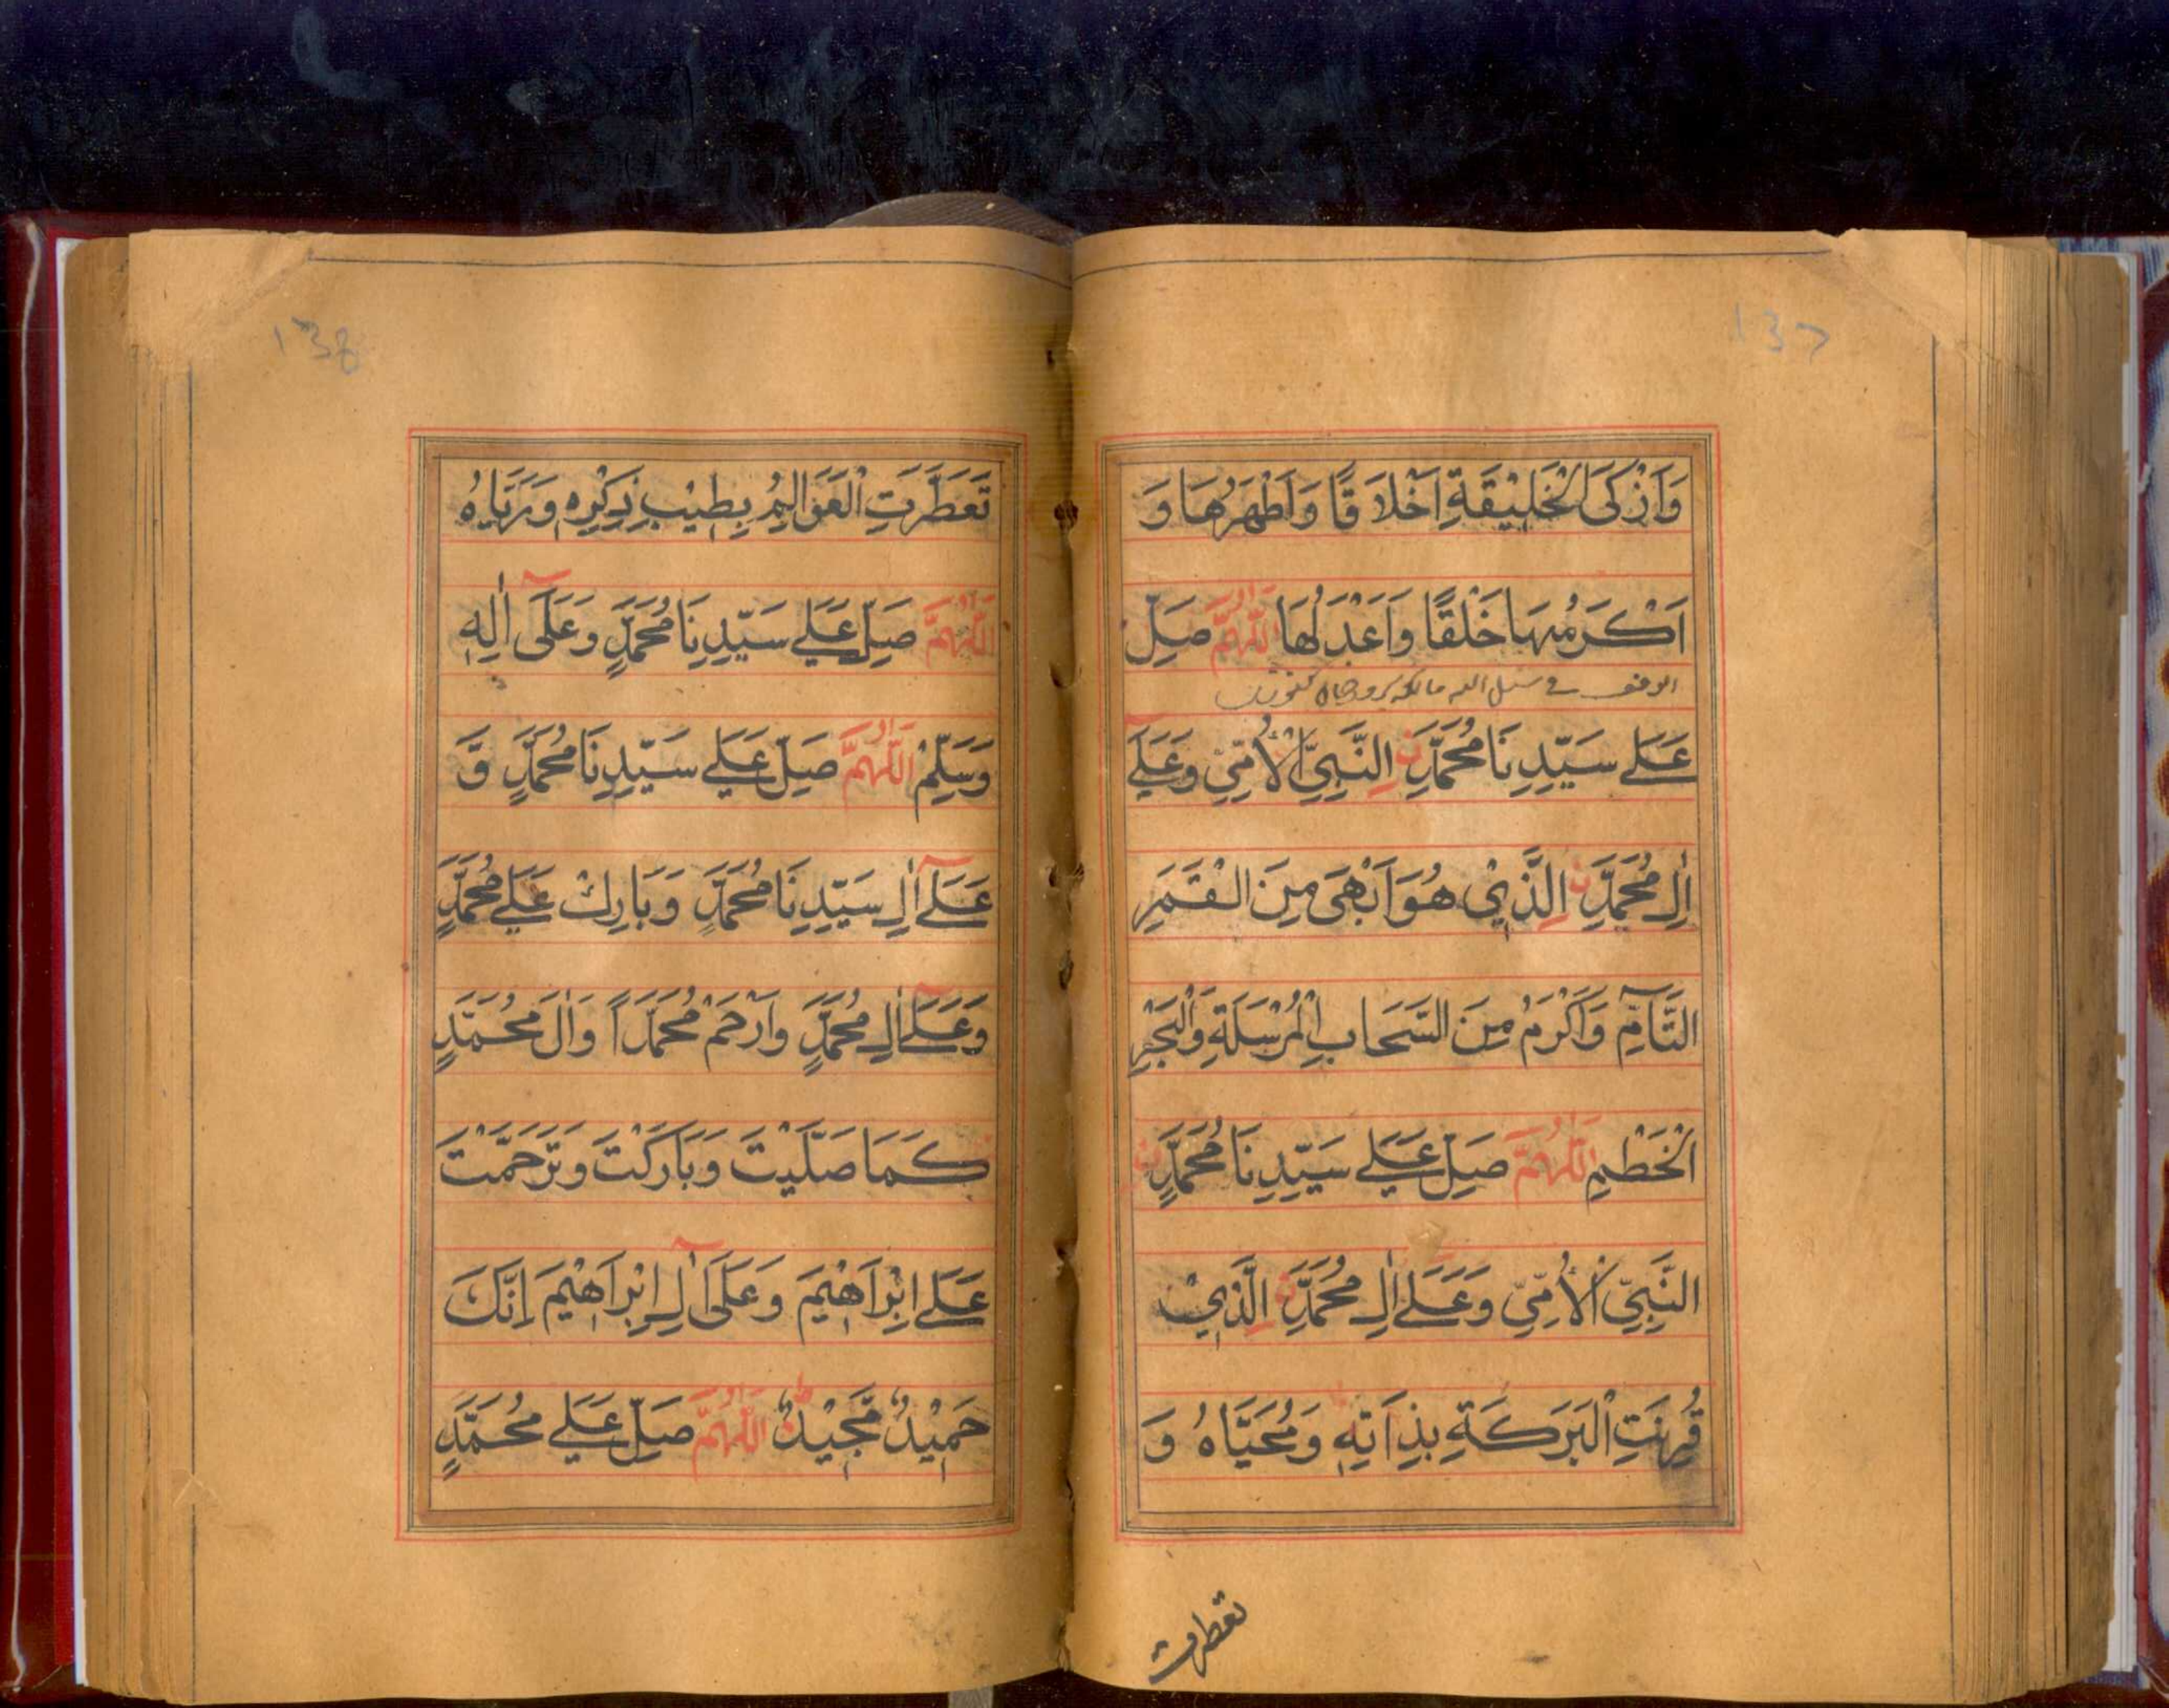 137
وَاَزْكَى الْخَلِيْقَةِ اَخْلَاقًا وَاَطْهَرُهَا وَ
اَكْرَمُهَا خَلْقًا وَاَعْدَلُهَا اَللّٰهُمَّ صَلِّ
الوقف فى سبيل الله
عَلٰے سَيِّدِنَا مُحَمَّدِنِ النَّبِيِّ الْاُمِّيِّ وَعَلٰٓے
اٰلِ مُحَمَّدِنِ الَّذِيْ هُوَ اَبْهٰى مِنَ الْقَمَرِ
التَّآمِّ وَاَكْرَمُ مِنَ السَّحَابِ الْمُرْسَلَةِ وَالْبَحْرِ
الْخَطْمِ اَللّٰهُمَّ صَلِّ عَلٰے سَيِّدِنَا مُحَمَّدٍنِ
النَّبِيِّ الْاُمِّيِّ وَعَلٰٓے اٰلِ مُحَمَّدِنِ الَّذِيْ
قُرِنَتِ الْبَرَكَةُ بِذَاتِهٖ وَمُحَيَّاهُ وَ
تعطرت
138
تَعَطَّرَتِ الْعَوَالِمُ بِطِيْبِ ذِكْرِهٖ وَرَيَّاهُ
اَللّٰهُمَّ صَلِّ عَلٰے سَيِّدِنَا مُحَمَّدٍ وَعَلٰٓى اٰلِهٖ
وَسَلِّمْ اَللّٰهُمَّ صَلِّ عَلٰے سَيِّدِنَا مُحَمَّدٍ وَّ
عَلٰٓے اٰلِ سَيِّدِنَا مُحَمَّدٍ وَبَارِكْ عَلٰے مُحَمَّدٍ
وَعَلٰٓے اٰلِ مُحَمَّدٍ وَارْحَمْ مُحَمَّدًا وَاٰلَ مُحَمَّدٍ
كَمَا صَلَّيْتَ وَبَارَكْتَ وَتَرَحَّمْتَ
عَلٰے اِبْرَاهِيْمَ وَعَلٰٓى اٰلِ اِبْرَاهِيْمَ اِنَّكَ
حَمِيْدٌ مَّجِيْدٌ اَللّٰهُمَّ صَلِّ عَلٰے مُحَمَّدٍ